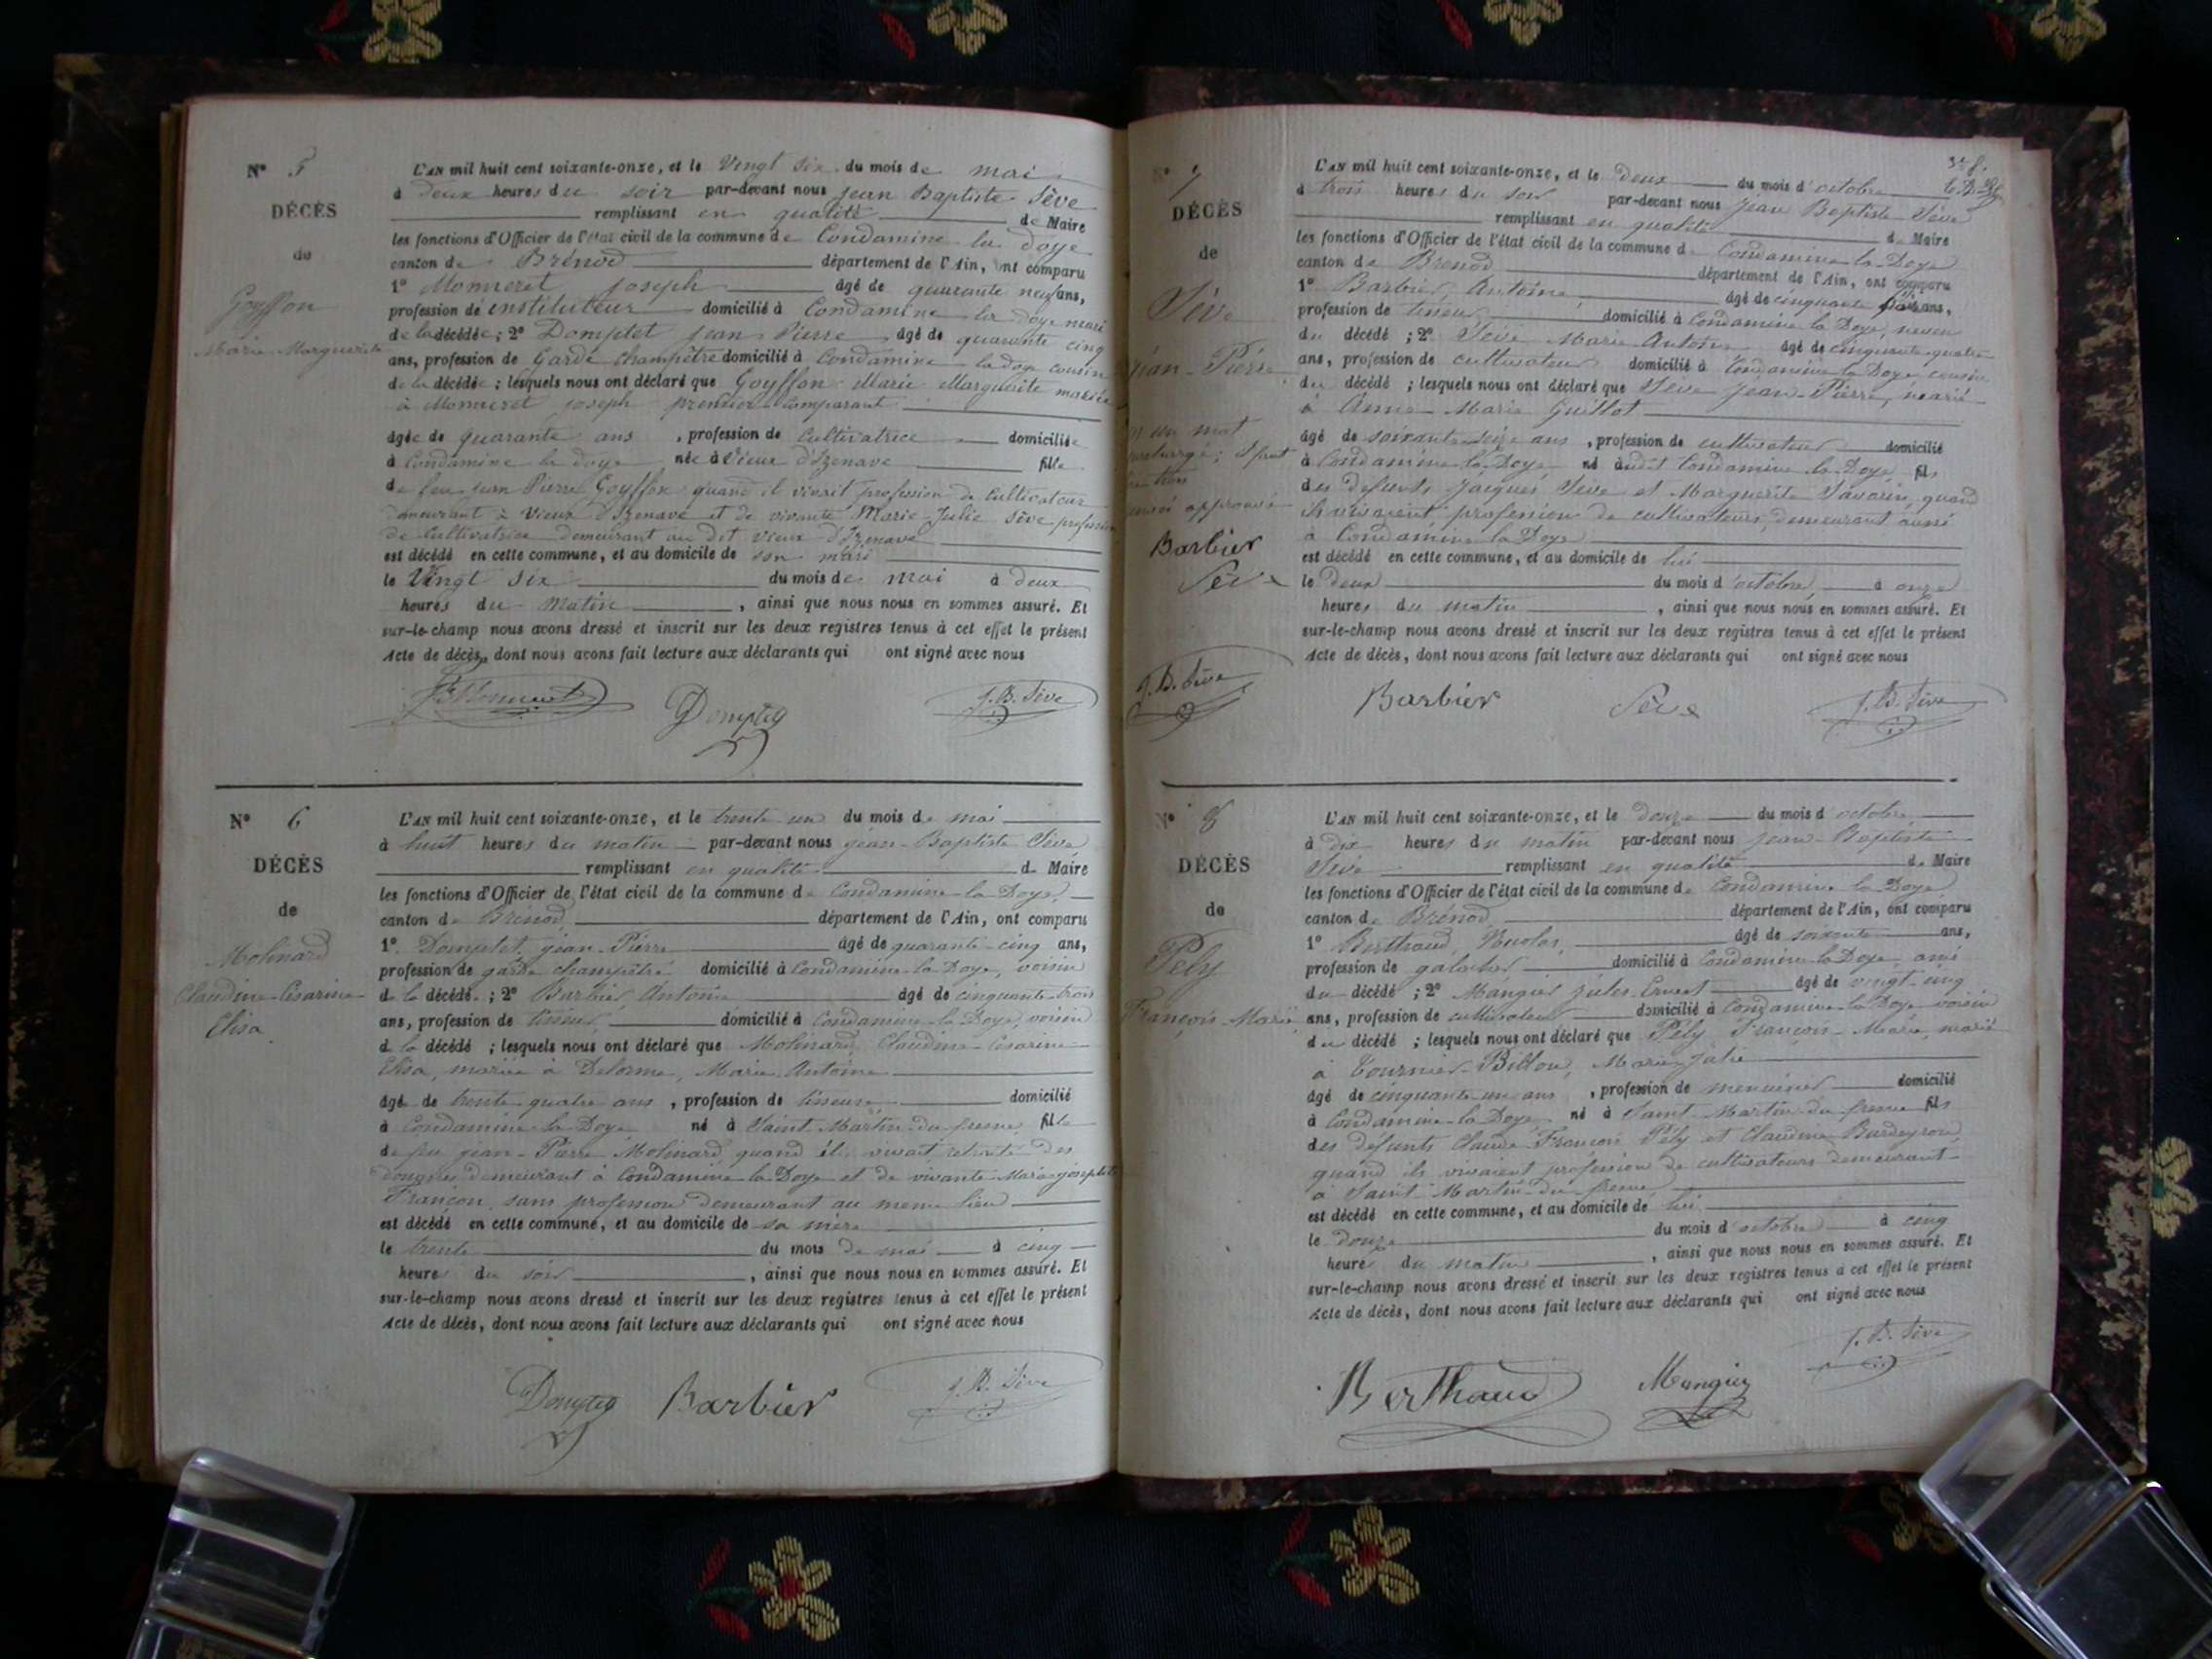 N° 5
DÉCÈS
de
Goyffon
Marie Marguerite
L'AN mil huit cent soixante-onze, et le Vingt six du mois de mai
à deux heures du soir par-devant nous jean Baptiste Sève
remplissant en qualité de Maire
les fonctions d'Officier de l'état civil de la commune de Condamine la doye
canton de Brénod département de l'Ain, ont comparu
1° Monneret joseph âgé de quarante neuf ans,
profession de instituteur domicilié à Condamine la doye mari
de la décédée; 2° Domptet jean Pierre âgé de quarante cinq
ans, profession de Garde champêtre domicilié à Condamine la doye cousin
de la décédée; lesquels nous ont déclaré que Goyffon Marie Marguerite mariée
à Monneret joseph premier comparant
âgée de quarante ans, profession de Cultivatrice domiciliée
à Condamine la doye née à Vieux d'Izenave fille
de feu jean Pierre Goyffon quand il vivait profession de Cultivateur
demeurant à Vieux d'Izenave et de vivante Marie Julie Sève profession
de Cultivatrice demeurant au dit Vieux d'Izenave
est décédé en cette commune, et au domicile de son mari
le Vingt six du mois de mai à deux
heures du Matin, ainsi que nous nous en sommes assuré. Et
sur-le-champ nous avons dressé et inscrit sur les deux registres tenus à cet effet le présent
Acte de décès, dont nous avons fait lecture aux déclarants qui ont signé avec nous
J. B. Sève
N° 6
DÉCÈS
de
Molinard
Claudine-Césarine
Elisa
L'AN mil huit cent soixante-onze, et le trente un du mois de mai
à huit heures du matin par-devant nous jean-Baptiste Sève
remplissant en qualité de Maire
les fonctions d'Officier de l'état civil de la commune de Condamine-la-Doye,
canton de Brénod département de l'Ain, ont comparu
1° Domptet, jean-Pierre âgé de quarante-cinq ans,
profession de garde champêtre domicilié à Condamine-la-Doye, voisin
de la décédé; 2° Barbier Antoine âgé de cinquante-trois
ans, profession de tisseur domicilié à Condamine-la-Doye, voisin
de la décédé; lesquels nous ont déclaré que Molinard, Claudine-Césarine
Elisa, mariée à Delorme, Marie-Antoine
âgé de trente-quatre ans, profession de tisseuse domicilié
à Condamine-la-Doye né à Saint-Martin-du-fresne, fille
de feu jean-Pierre Molinard, quand il vivait, retraité des
douanes demeurant à Condamine-la-Doye et de vivante Marie-josephte
Françon, sans profession demeurant au même lieu
est décédé en cette commune, et au domicile de sa mère
le trente du mois de mai à cinq
heures du soir, ainsi que nous nous en sommes assuré. Et
sur-le-champ nous avons dressé et inscrit sur les deux registres tenus à cet effet le présent
Acte de décès, dont nous avons fait lecture aux déclarants qui ont signé avec nous
Barbier J. B. Sève
N° 7
DÉCÈS
de
Sève
jean-Pierre
un mot
approuvé
Barbier
Sève
J. B. Sève
L'AN mil huit cent soixante-onze, et le deux du mois d'octobre
à trois heures du soir par-devant nous jean Baptiste Sève
remplissant en qualité de Maire
les fonctions d'Officier de l'état civil de la commune de Condamine-la-Doye
canton de Brénod département de l'Ain, ont comparu
1° Barbier, Antoine âgé de cinquante trois ans,
profession de tisseur domicilié à Condamine-la-Doye, neveu
du décédé; 2° Sève Marie Antoine âgé de cinquante-quatre
ans, profession de cultivateur domicilié à Condamine-la-Doye cousin
du décédé; lesquels nous ont déclaré que Sève jean-Pierre, marié
à Anne-Marie Guillot
âgé de soixante-seize ans, profession de cultivateur domicilié
à Condamine-la-Doye né audit Condamine-la-Doye, fils
des défunts Jacques Sève et Marguerite Savarin, quand
ils vivaient profession de cultivateurs, demeurant aussi
à Condamine-la-Doye
est décédé en cette commune, et au domicile de lui
le deux du mois d'octobre, à onze
heures du matin, ainsi que nous nous en sommes assuré. Et
sur-le-champ nous avons dressé et inscrit sur les deux registres tenus à cet effet le présent
Acte de décès, dont nous avons fait lecture aux déclarants qui ont signé avec nous
Barbier Sève J. B. Sève
N° 8
DÉCÈS
de
Pély
François-Marie
L'AN mil huit cent soixante-onze, et le douze du mois d'octobre
à dix heures du matin par-devant nous jean-Baptiste
Sève remplissant en qualité de Maire
les fonctions d'Officier de l'état civil de la commune de Condamine-la-Doye
canton de Brénod département de l'Ain, ont comparu
1° Berthaud, Nicolas âgé de soixante ans,
profession de domicilié à Condamine-la-Doye, ami
du décédé; 2° Mangier jules-Ernest âgé de vingt-cinq
ans, profession de cultivateur domicilié à Condamine-la-Doye voisin
du décédé; lesquels nous ont déclaré que Pély François-Marie, marié
à Tournier-Billon, Marie-Julie
âgé de cinquante-un ans, profession de menuisier domicilié
à Condamine-la-Doye né à Saint-Martin-du-fresne fils
des défunts Claude-François Pély et Claudine Burdeyron,
quand ils vivaient profession de cultivateurs demeurant
à Saint-Martin-du-fresne
est décédé en cette commune, et au domicile de lui
le douze du mois d'octobre à cinq
heures du matin, ainsi que nous nous en sommes assuré. Et
sur-le-champ nous avons dressé et inscrit sur les deux registres tenus à cet effet le présent
Acte de décès, dont nous avons fait lecture aux déclarants qui ont signé avec nous
Berthaud Mangier J. B. Sève